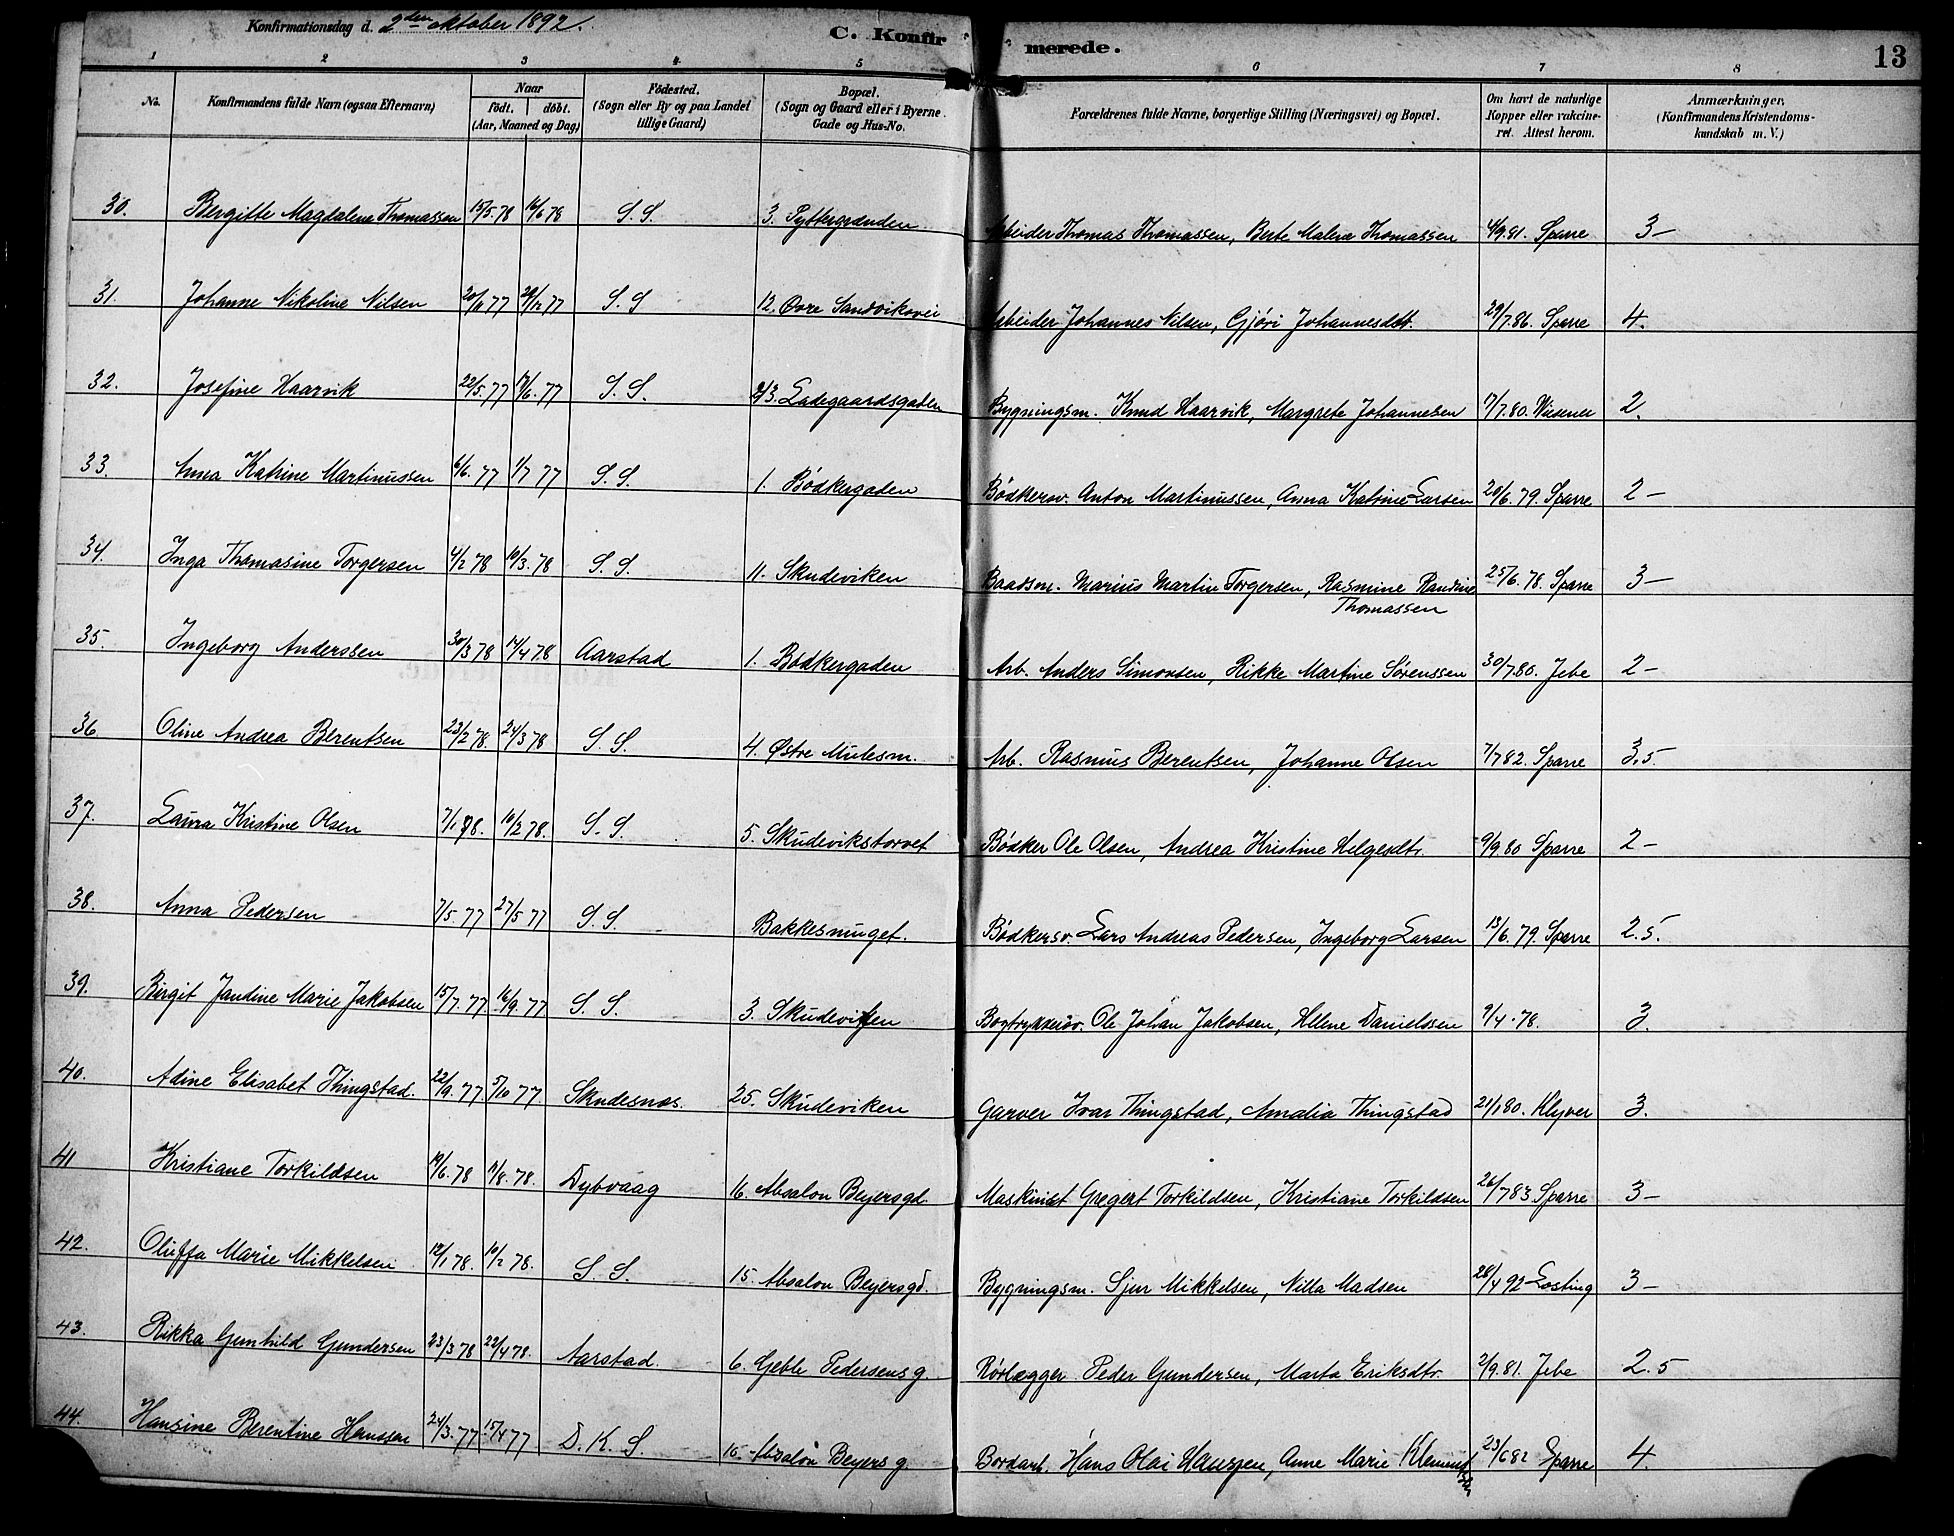 Konfirmationsdag d. 2den oktober 1892.
C. Konfirmerede.
13
1 2 3 4 5 6 7 8
No. Konfirmandens fulde Navn (ogsaa Efternavn) Naar født. døbt. (Aar, Maaned og Dag) Fødested. (Sogn eller By og paa Landet tillige Gaard) Bopæl. (Sogn og Gaard eller i Byerne Gade og Hus-No. Forældrenes fulde Navne, borgerlige Stilling (Næringsvei) og Bopæl. Om havt de naturlige Kopper eller vakcineret. Attest herom. Anmærkninger, (Konfirmandens Kristendomskundskab m. V.)
30. Bergitte Magdalene Thomassen 15/5.78 16/6 78 S. S. 3. Pyttergrænden Arbeider Thomas Thomassen, Berte Malene Thomassen 4/9.81. Sparre 3-
31. Johanne Nikoline Nilsen 20/11 77 26/12 77 S. S 12. Øvre Sandviksvei Arbeider Johannes Nilsen, Gjøri Johannesdtt. 29/7.86. Sparre 4.
32. Josefine Haarvik 22/5.77 17/6.77 S. S. 23. Ladegaardsgaden Bygningsm. Knud Haarvik, Margrete Johannesen 17/7.80. Wiesener 2.
33. Anna Katrine Martinussen 6/6.77 1/7 77 S. S. 1. Bødkergaden Bødkersv. Anton Martinussen, Anna Katrine Larsen 20/6.79. Sparre 2-
34. Inga Thomasine Torgersen 4/2 78 10/3.78 S. S. 11. Skudeviken Baadsm. Marius Martin Torgersen, Rasmine Randine Thomassen 25/6.78. Sparre 3-
35. Ingeborg Anderssen 30/3 78 14/4 78 Aarstad 1. Bødkergaden Arb. Anders Simonsen, Rikke Martine Sørenssen 30/7.80. Jebe 2-
36. Oline Andrea Berentsen 23/2 78. 24/3 78 S. S. 4. Østre Mulesm. Arb. Rasmus Berentsen, Johanne Olsen 7/7 82. Sparre 3.5.
37. Laura Kristine Olsen 7/1 78. 10/2 78. S. S. 5. Skudevikstorvet Bødker Ole Olsen, Andrea Kristine Helgesdtr. 9/9.80 Sparre 2-
38. Anna Pedersen 7/5.77 27/5 77 S. S. Bakkesmuget. Bødkersv. Lars Andreas Pedersen, Ingeborg Larsen 13/6.79. Sparre 2.5.
39. Birgit Jandine Marie Jakobsen 15/7.77. 16/9.77 S. S. 3. Skudeviken Bogtrykkersv. Ole Johan Jakobsen, Helene Danielssen 9/4.78. 3.
40. Adine Elisabet Thingstad. 22/9.77. 5/10 77. Skudesnæs. 25. Skudeviken Garver Ivar Thingstad, Amalia Thingstad 21/1 80. Klyver 3.
41 Kristiane Torkildsen 19/6.78 11/8.78. Dybvaag 16. Absalon Beyersgd. Maskinist Gregert Torkildsen, Kristiane Torkildsen 26/7 83 Sparre 3-
42. Oluffa Marie Mikkelsen 12/1 78. 10/2 78. S. S. 15. Absalon Beyersgd. Bygningsm. Sjur Mikkelsen, Nilla Madsen 28/4 92 Losting 3-
43. Rikka Gunhild Gundersen 23/3 78 22/4 78. Aarstad. 6. Geble Pedersens g. Rørlægger Peder Gundersen, Marta Eriksdtr. 2/9.81. Jebe 2.5
44. Hansine Berentine Hanssen 24/3.77. 15/4 77 D. K. S. 10. Absalon Beyers g. Bordarb. Hans Olai Hanssen, Anne Marie 23/6 82 Sparre 4.